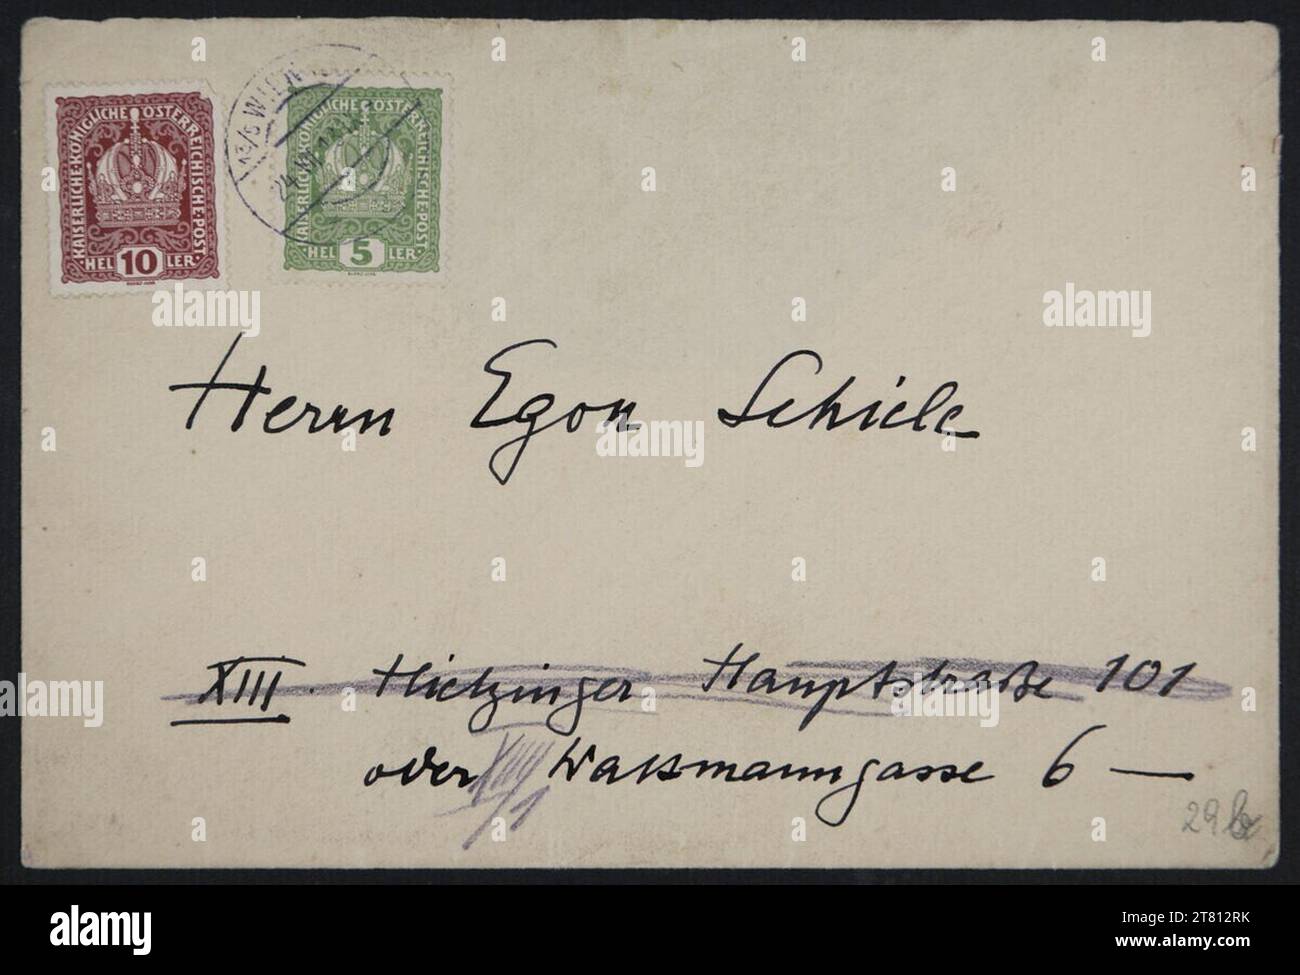 KAISERLICHE·KÖNIGLICHE ÖSTERREICHISCHE·POST
HEL 10 LER
KAISERLICHE·KÖNIGLICHE ÖSTERREICHISCHE·POST
HEL 5 LER
WIEN
Herrn Egon Schiele
XIII. Hietzinger Hauptstraße 101
oder XIII/1 Wattmanngasse 6 —
29
alamy
alamy
Image ID: 2T812RK
www.alamy.com